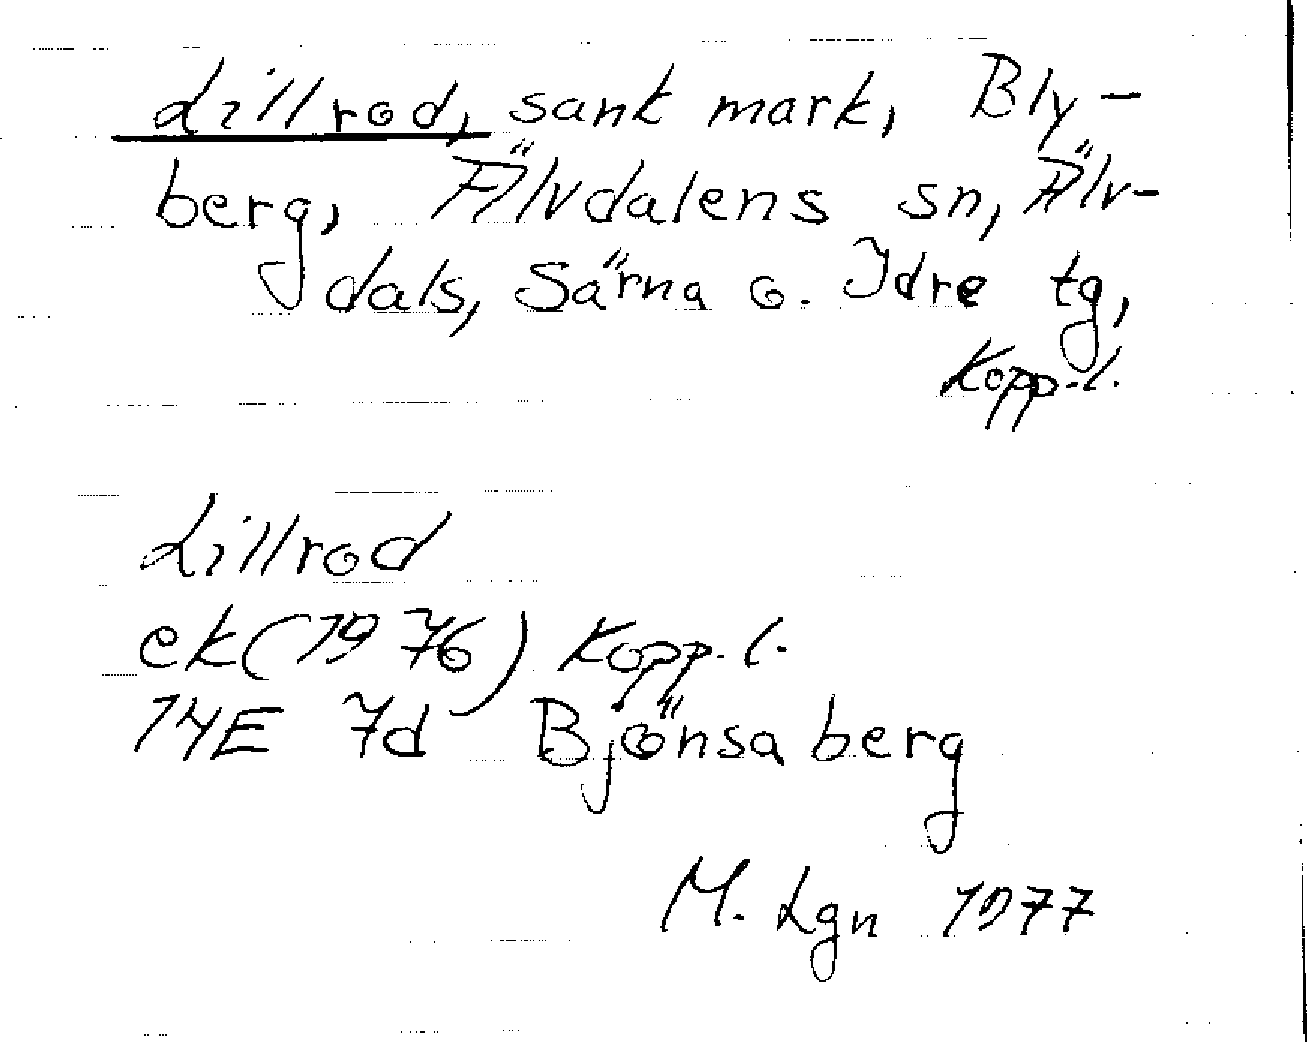 Lillrod, sank mark, Bly-
berg, Älvdalens sn, Älv-
dals, Särna o. Idre tg,
Kopp.l.
Lillrod
ek (1976) Kopp.l.
14E 7d Björnsaberg
M. Lgn 1977